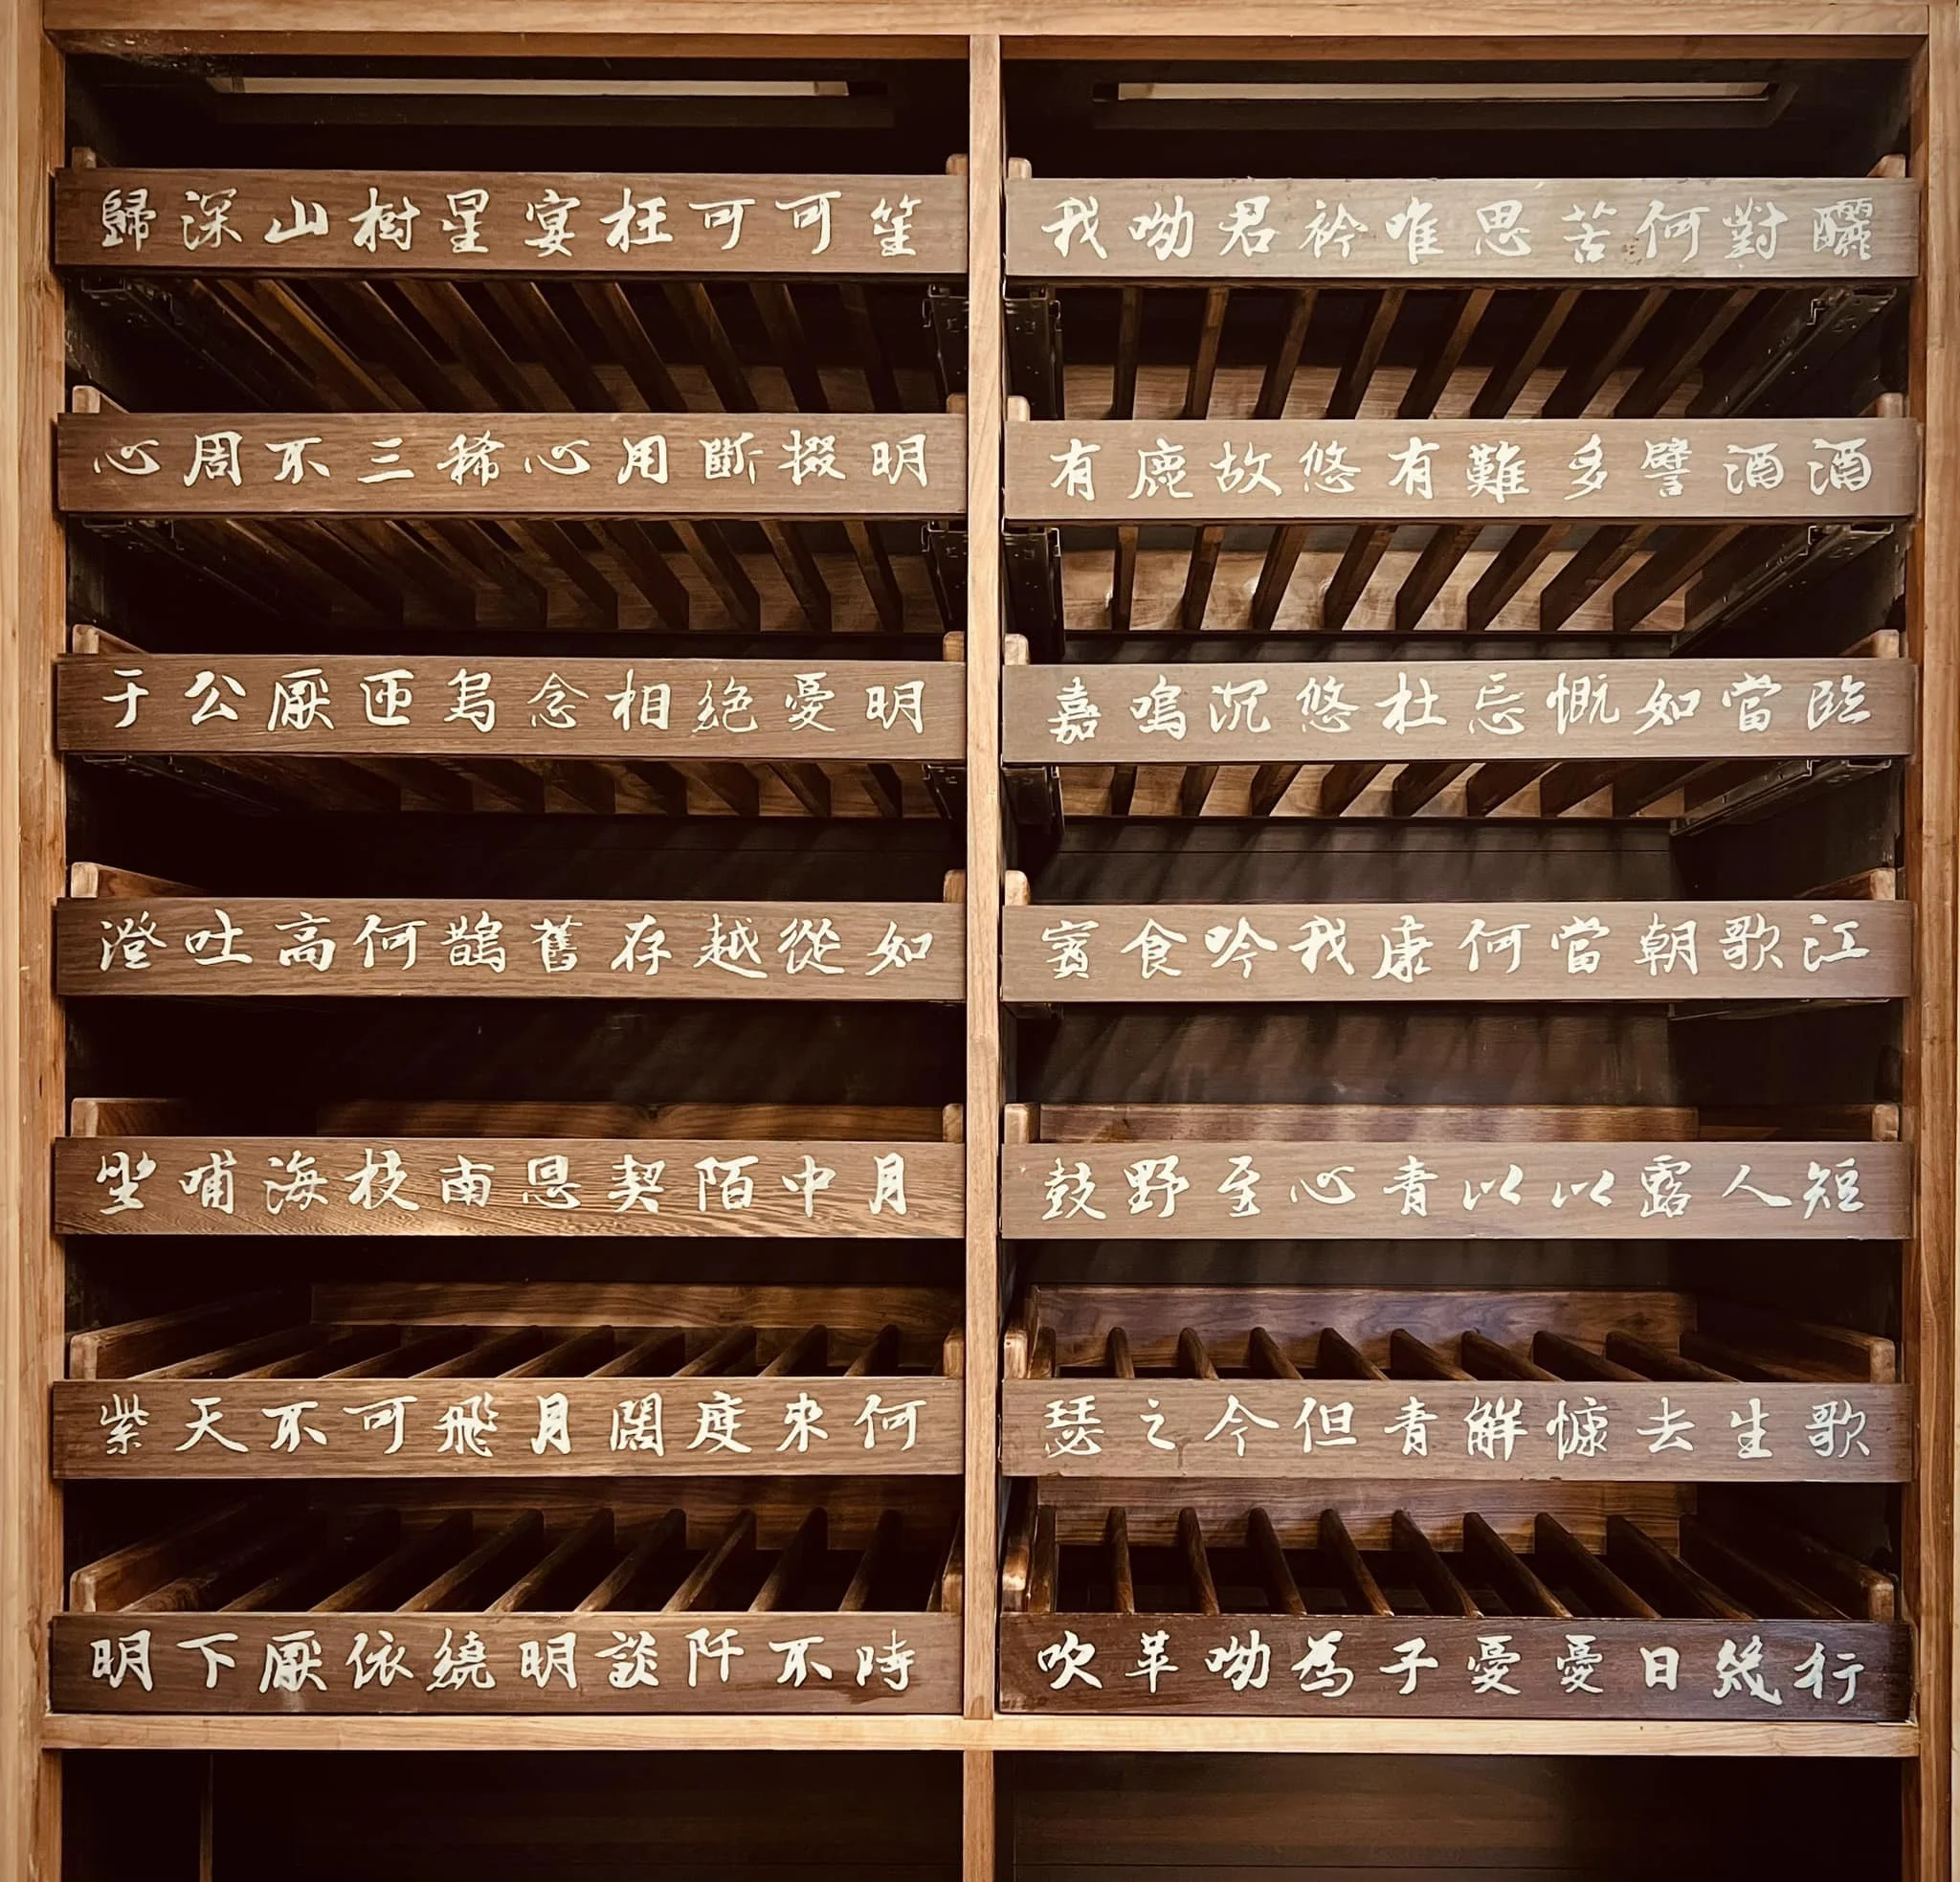 釃酒臨江短歌行
對酒當歌人生幾
何譬如朝露去日
苦多慨當以慷憂
思難忘何以解憂
唯有杜康青青子
衿悠悠我心但為
君故沉吟至今呦
呦鹿鳴食野之苹
我有嘉賓鼓瑟吹
笙明明如月何時
可掇憂從中來不
可斷絕越陌度阡
枉用相存契闊談
宴心念舊恩月明
星稀烏鵲南飛繞
樹三匝何枝可依
山不厭高海不厭
深周公吐哺天下
歸心于澄坐紫明